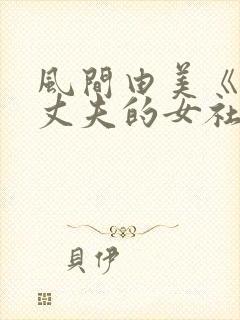 風間由美《
丈夫的女社
貝伊